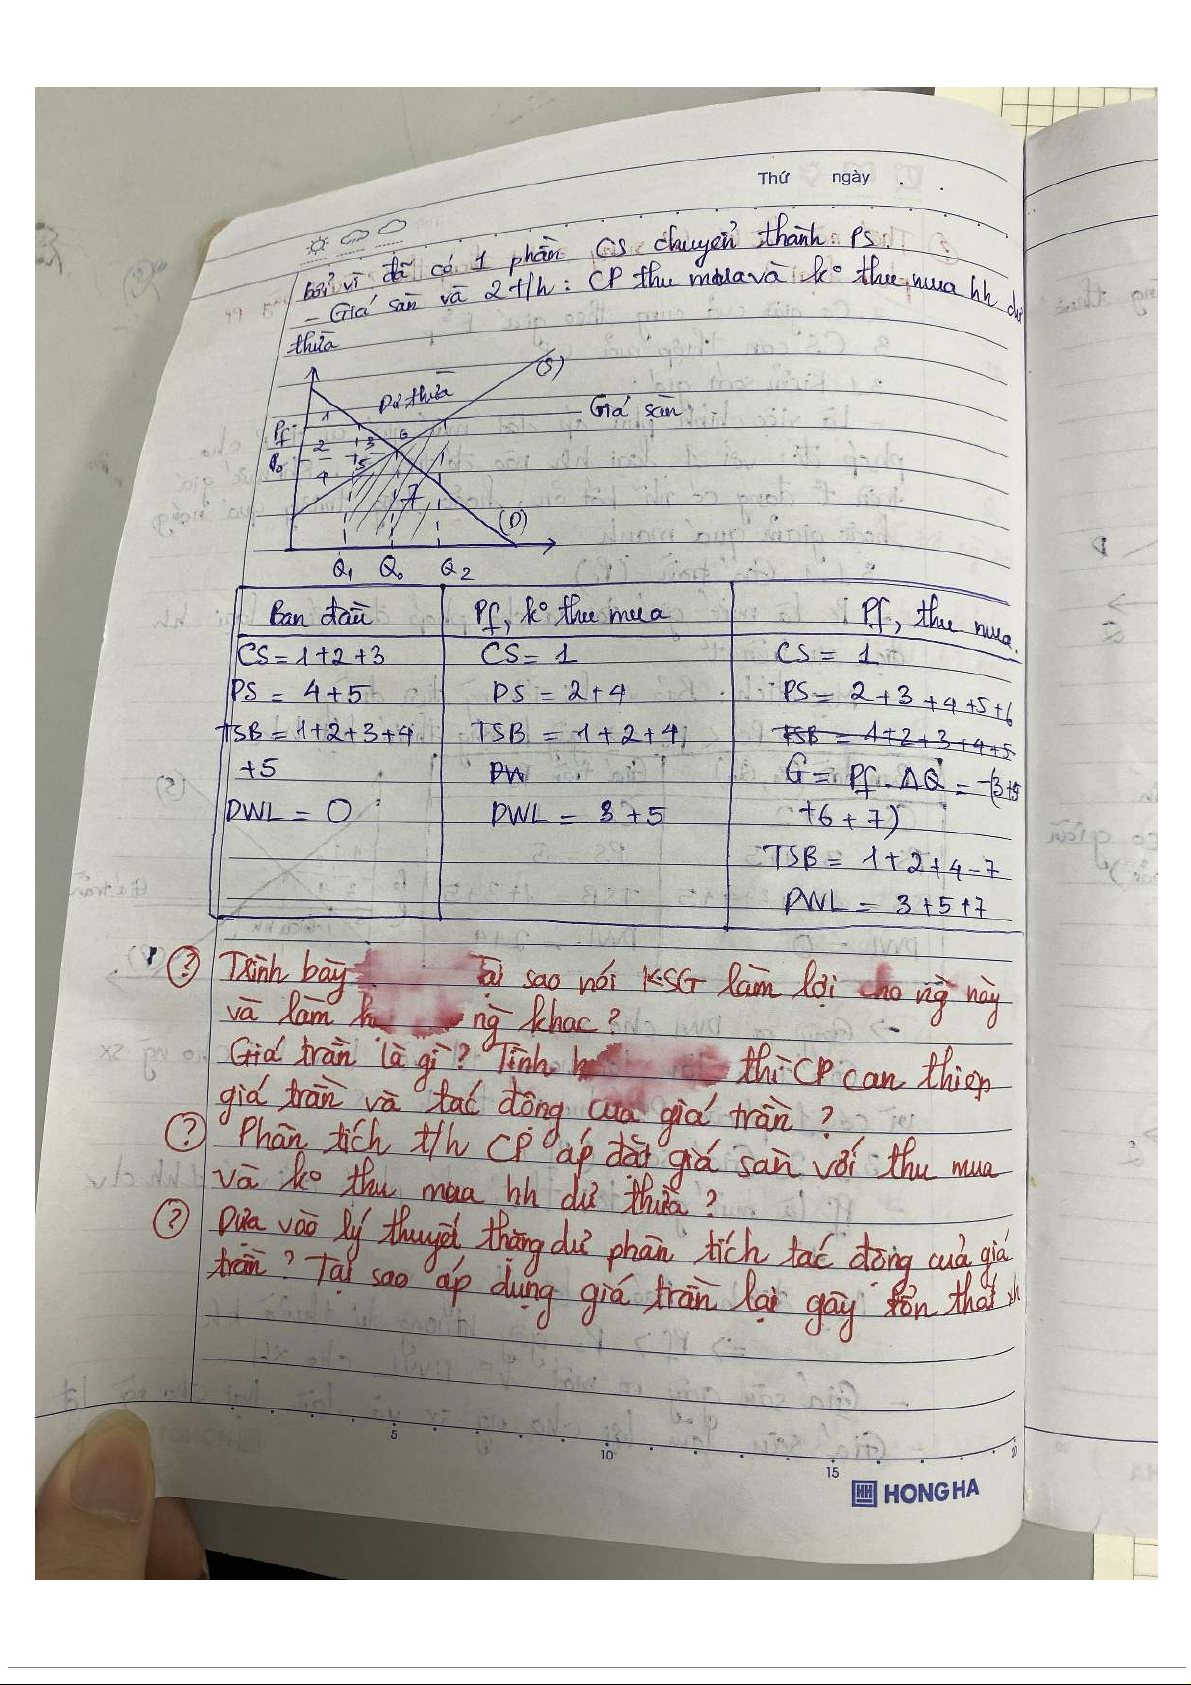 Thứ ngày
Bởi vì đã có 1 phần CS chuyển thành PS
- Giá sàn và 2 t/h: CP thu mua và k° thu mua hh dư
thừa
(S)
Dư thừa
Giá sàn
Pf
1
2
3
6
P₀
4
5
7
(D)
Q₁ Q₀ Q₂
Ban đầu Pf, k° thu mua Pf, thu mua.
CS = 1+2+3 CS = 1 CS = 1
PS = 4+5 PS = 2+4 PS = 2+3+4+5+6
TSB = 1+2+3+4 TSB = 1+2+4 TSB = 1+2+3+4+5
+5 DW G = Pf.ΔQ = -(3+5
DWL = 0 DWL = 3+5 +6+7)
TSB = 1+2+4-7
DWL = 3+5+7
? Trình bày sao nói KSG làm lợi cho ng này
và làm ng khác?
Giá trần là gì? Tình thì CP can thiệp
giá trần và tác động của giá trần?
? Phân tích t/h CP áp đặt giá sàn với thu mua
và k° thu mua hh dư thừa?
? Dựa vào lý thuyết thặng dư phân tích tác động của giá
trần? Tại sao áp dụng giá trần lại gây tổn thất xh
5
10
15
20
HONG HA